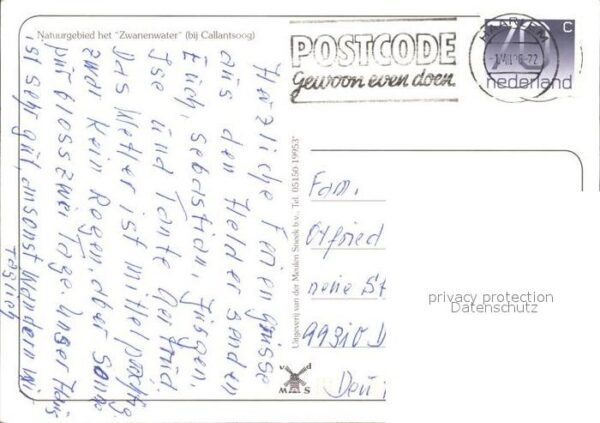 Natuurgebied het "Zwanenwater" (bij Callantsoog)
POSTCODE
Gewoon even doen.
HAARLEM
70 C
nederland
Herzliche Feriengrüsse
aus den Helder senden
Euch, Sebastian, Jürgen,
Ilse und Tante Gertrud.
Das Wetter ist mittelprächtig
zwar kein Regen, aber Sonne
nur bloss zwei Tage. Unser Haus
ist sehr gut, ansonst wandern wir
täglich
Uitgeverij van der Meulen Sneek b.v., Tel. 05150-19953*
v d
M S
Fam.
Otfried
neine St
99310 D
Deu
privacy protection
Datenschutz